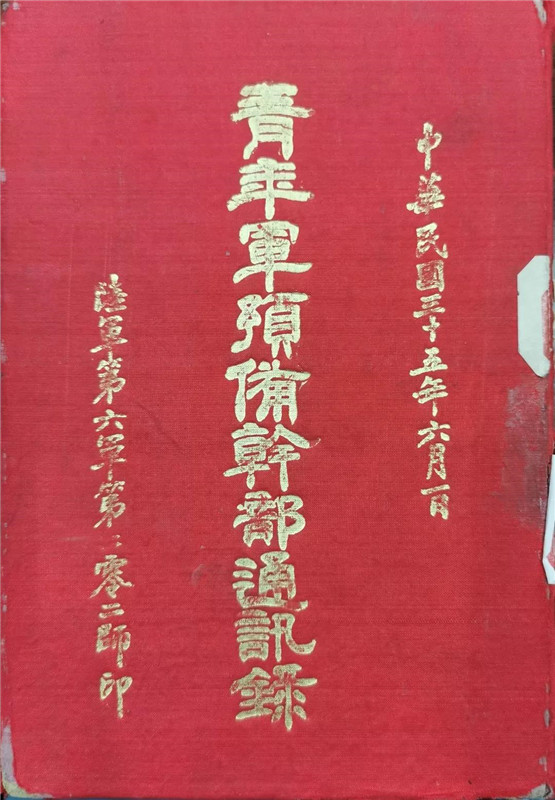 中華民國三十五年六月一日
青年軍預備幹部通訊錄
陸軍第六軍第二零二師印